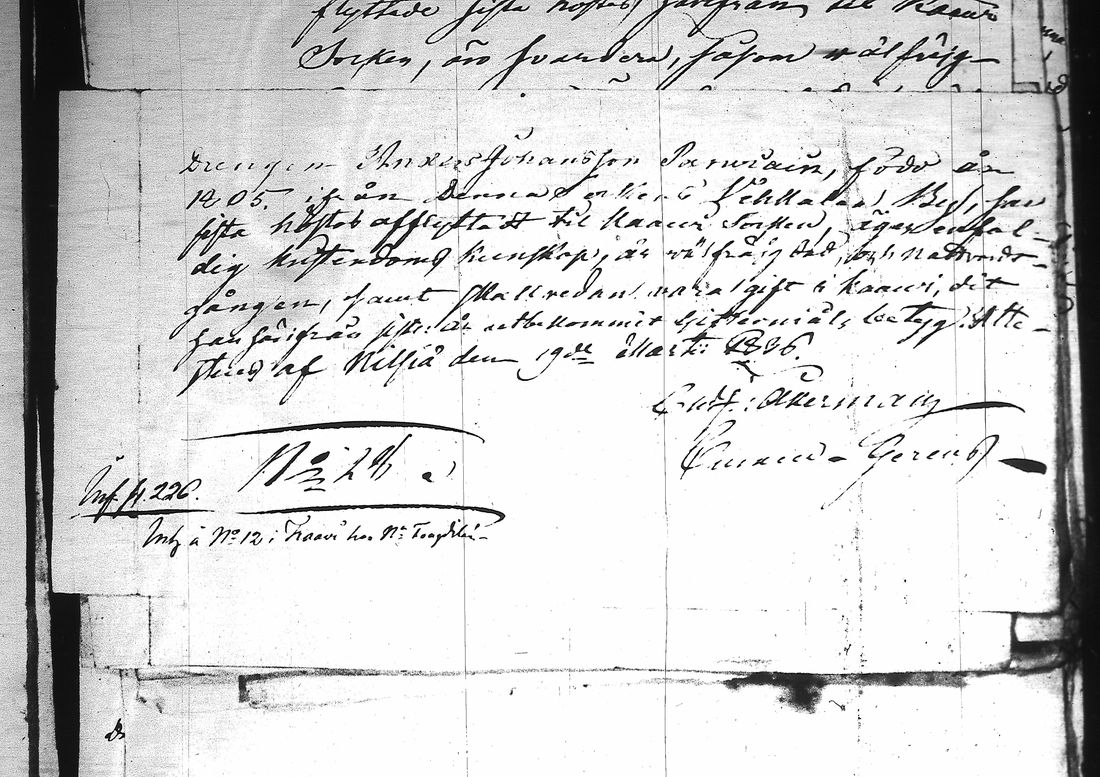 flyttade sista höstas härifrån til Kaavi
Socken, äro hvardera, såsom wälfrejg-
Drengen Anders Johansson Parviain, född år
1805. ifrån denna Sockens Vehkalax By, har
sista höstas afflyttadt til Kaavi Socken, äger enfal-
dig Kristendoms kunskap, är välfräigdad, och Nattvards-
gången, samt skall redan vara gift i Kaavi, dit
han härifrån sistl: år utbekommit Giftermåls betyg. Atte-
steras af Nilsiä den 19de Martii 1836.
Gust: Åkerman
Gerens
No 28.
Inf. fl. 226.
Intz å No 12 i Kaavi hos